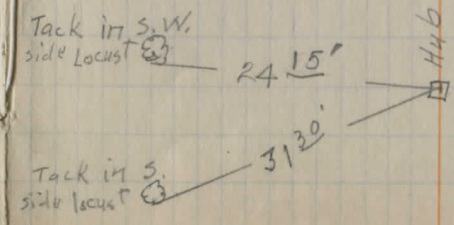 Tack in S.W.
side Locust
24 15'
Hub
31 30'
Tack in S.
side locust